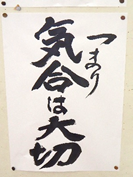 つまり
気合は大切